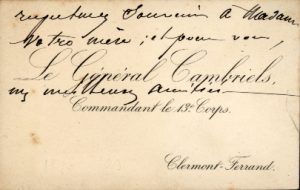 respectueux souvenir à Madame
Votre mère, et pour vous,
Le Général Cambriels,
mes meilleures amitiés
Commandant le 13e Corps.
Clermont-Ferrand.